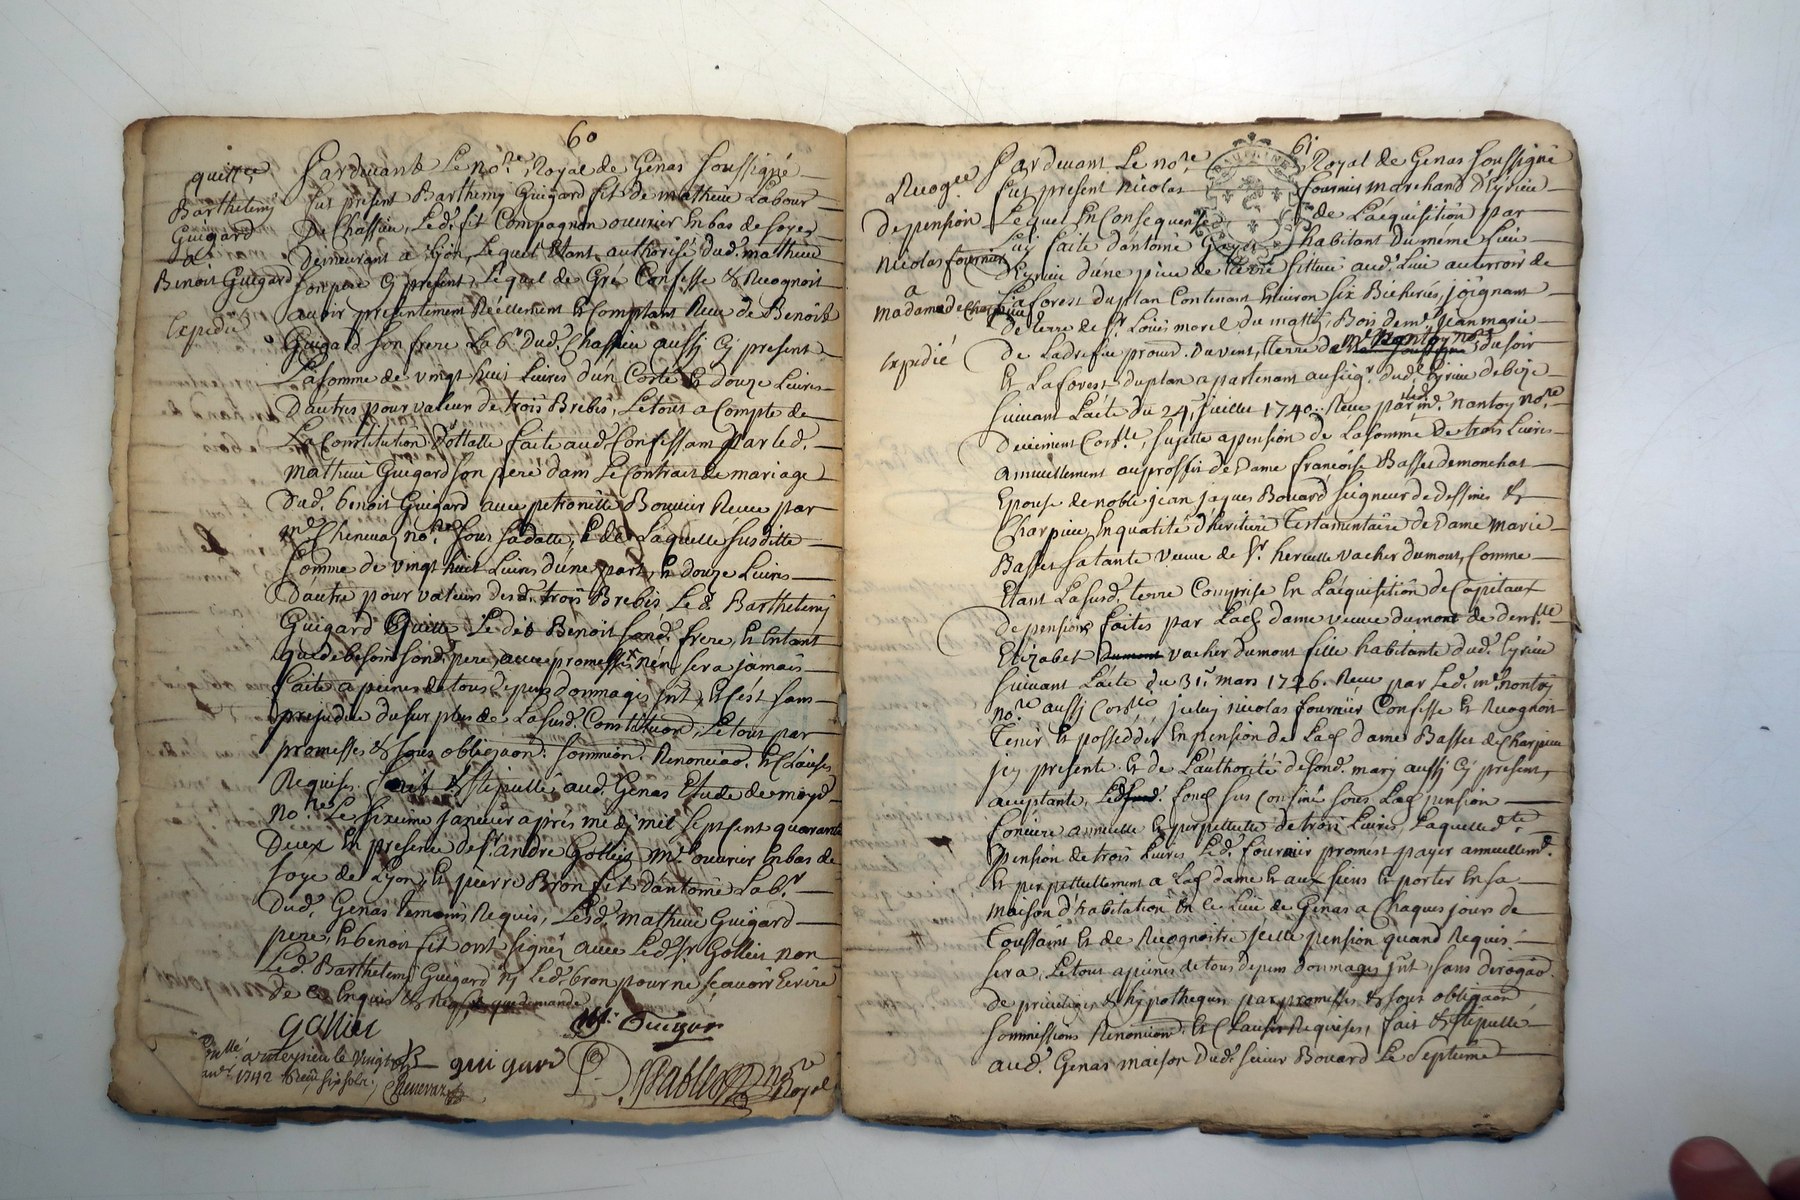 60
quitt.ce
Barthelemy
Guigard
a
Benoit Guigard
Expedié
Pardevant Le no.re Royal de Genas soussigné
fut present Barthemy Guigard fit de mathieu Labour
De Chassieu, Led. fit Compagnon ouvrier En bas de soyes
Demeurant a Lyon, Lequel Etant authorisé dud. mathieu
son pere Cy present, Lequel de Gré Confesse & Recognoit
avoir presentement Réellement Et Comptant Receu de Benoit
Guigard son frere Lab.r dud. Chassieu aussy Cy present
La somme de vingt huit Livres d'un Corté Et douze Livres
D'autres pour valeur de trois Brebis, Le tout a Compte de
La Constitution Dottalle faite aud. Confessant par led.
mathieu Guigard son pere dans Le Contrait de mariage
Dud. benoit Guigard avec petronille Bouvier Receu par
m.e Cheneva, no.re sous sa datte, Et de Laquelle susditte
somme de vingt huit Livres d'une part, Et douze Livres
D'autre pour valeurs desd. trois Brebis Led. Barthelemy
Guigard Quitte Le dit Benoit sond. frere, Et En tant
que de besoin sond. pere, avec promesse n'en sera jamais
faite a peines de tous depens dommages Int. Et s'est sans
prejudice du sur plus de La susd. Constitution, Le tout par
promesses & sous obligaon. sommion. Renonciao. Et Clauses
Requises. fait & stepullé aud. Genas Etude de moyd.
no.re Le sixieme janvier après midy mil sept sent quarante
Deux En presence de s.r andre Gollier m.e ouvrier En bas de
soye de Lyon, Et pierre Bron fit d'antoine Lab.r
Dud. Genas temoins Requis, Lesd. mathieu Guigard
pere, Et benoit fit ont signez avec Led. sr Gollier non
Led. Barthelemy Guigard ny Led. bron pour ne sçavoir Ecrire
de ce Enquis & Req.
gollier
M. Guigar
guigard
Pablo no.re Royal
a meysieu le vingt
1742 Receu six sols
Chenevaz
61
Recog.ce
De pension
Nicolas fournier
a
Madame de Charpieu
Expedié
Pardevant Le no.re Royal de Genas soussigné
fut present Nicolas fournier marchand D'Eyrieu
Lequel En Consequense de L'acquisition par
Luy faite d'antoine habitant du même Lieu
D'Eyrieu d'une piece de terre sittuée aud. Lieu au terroir de
La forest du plan Contenant Environ six Bicherées, joignant
De terre de s.r Louis morel du matt., Bois de m.r Jean marie
De Ladrefiu procur. du vent, terre de m.e Nantoy no.re du soir
Et La forest du plan apartenant au seig.r dud. Eyrieu de bize
suivant L'acte du 24. juillet 1740. Receu par led. m.e nantoy no.re
Deüement Con.lle, sujette a pension de La somme de trois Livres
annuellement au proffit de Dame francoise Basset de monchat
Epouse de noble jean jaques Bouard seigneur de dessines &
Charpieu, En qualité d'heritiere Testamentaire de Dame marie
Basset sa tante veuve de s.r herculle vacher dumont, Comme
Etant La susd. terre Comprise En L'acquisition de Capitaux
De pensions faites par Lad. dame veuve dumont de dem.lle
Elizabet vacher dumont fille habitante dud. Eyrieu
suivant L'acte du 31. mars 1726. Receu par Led. m.e nontoy
no.re aussi Con.lle, iceluy nicolas fournier Confesse Et Recognoit
Tenir Et possedder En pension de Lad. dame Basset de Charpieu
jcy presente Et de L'authorité de sond. mary aussi Cy present,
acceptante, fond sus Confiné sous Lad. pension
fonciere annuelle Et perpettuelle de trois Livres, Laquelle d.te
pension de trois Livres Led. fournier promest payer annuellem.t
Et perpettuellement a Lad. dame Et aux siens Et porter En sa
maison d'habitation En ce Lieu de Genas a Chaques jours de
Toussaint Et de Recognoitre jcelle pension quand Requis
sera, Le tout a peines de tous depens dommages jnt. sans derogao.
de privileges & hypotheques par promesses & sous obligaon.
sommissions Renoncion. Et Clauses Requises, fait & stepullé
aud. Genas maison dud. sieur Bouard Le septieme